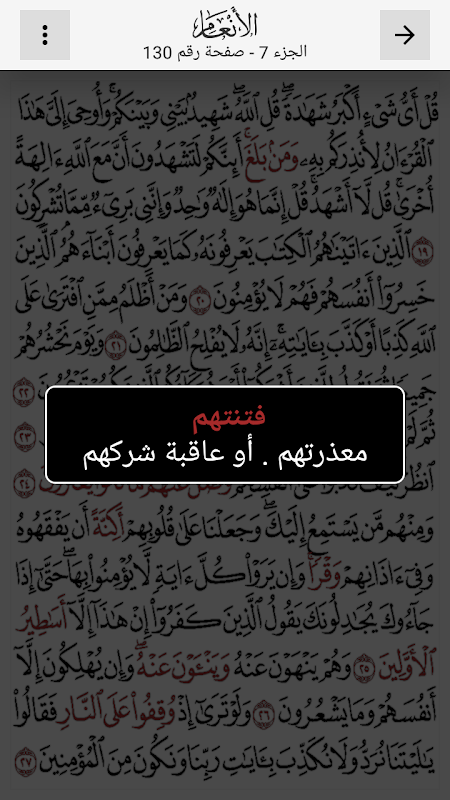 الأنعام
الجزء 7 - صفحة رقم 130
قُلْ أَيُّ شَيْءٍ أَكْبَرُ شَهَادَةً قُلِ ٱللَّهُ شَهِيدٌ بَيْنِي وَبَيْنَكُمْ وَأُوحِيَ إِلَيَّ هَٰذَا
ٱلْقُرْءَانُ لِأُنذِرَكُم بِهِۦ وَمَنۢ بَلَغَ أَئِنَّكُمْ لَتَشْهَدُونَ أَنَّ مَعَ ٱللَّهِ ءَالِهَةً
أُخْرَىٰ قُل لَّآ أَشْهَدُ قُلْ إِنَّمَا هُوَ إِلَٰهٌ وَٰحِدٌ وَإِنَّنِي بَرِيٓءٌ مِّمَّا تُشْرِكُونَ
١٩ ٱلَّذِينَ ءَاتَيْنَٰهُمُ ٱلْكِتَٰبَ يَعْرِفُونَهُۥ كَمَا يَعْرِفُونَ أَبْنَآءَهُمُ ٱلَّذِينَ
خَسِرُوٓا۟ أَنفُسَهُمْ فَهُمْ لَا يُؤْمِنُونَ ٢٠ وَمَنْ أَظْلَمُ مِمَّنِ ٱفْتَرَىٰ عَلَى
ٱللَّهِ كَذِبًا أَوْ كَذَّبَ بِـَٔايَٰتِهِۦٓ إِنَّهُۥ لَا يُفْلِحُ ٱلظَّٰلِمُونَ ٢١ وَيَوْمَ نَحْشُرُهُمْ
٢٢
٢٣
فتنتهم
معذرتهم . أو عاقبة شركهم
٢٤
وَمِنْهُم مَّن يَسْتَمِعُ إِلَيْكَ وَجَعَلْنَا عَلَىٰ قُلُوبِهِمْ أَكِنَّةً أَن يَفْقَهُوهُ
وَفِيٓ ءَاذَانِهِمْ وَقْرًا وَإِن يَرَوْا۟ كُلَّ ءَايَةٍ لَّا يُؤْمِنُوا۟ بِهَا حَتَّىٰٓ إِذَا
جَآءُوكَ يُجَٰدِلُونَكَ يَقُولُ ٱلَّذِينَ كَفَرُوٓا۟ إِنْ هَٰذَآ إِلَّآ أَسَٰطِيرُ
ٱلْأَوَّلِينَ ٢٥ وَهُمْ يَنْهَوْنَ عَنْهُ وَيَنْـَٔوْنَ عَنْهُ وَإِن يُهْلِكُونَ إِلَّآ
أَنفُسَهُمْ وَمَا يَشْعُرُونَ ٢٦ وَلَوْ تَرَىٰٓ إِذْ وُقِفُوا۟ عَلَى ٱلنَّارِ فَقَالُوا۟
يَٰلَيْتَنَا نُرَدُّ وَلَا نُكَذِّبَ بِـَٔايَٰتِ رَبِّنَا وَنَكُونَ مِنَ ٱلْمُؤْمِنِينَ ٢٧